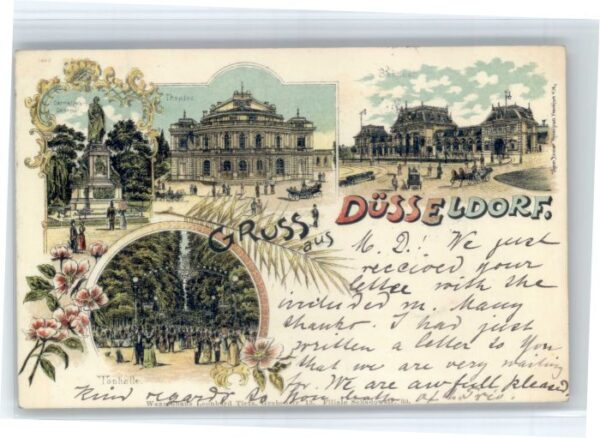 Cornelius-
Denkmal
Theater
GRUSS aus DÜSSELDORF.
Tonhalle.
M. D.! We just
received your
letter with the
included m. Many
thanks. I had just
written a letter to You
that we are very waiting
fr. We are awfull pleased
Kind regards to You both